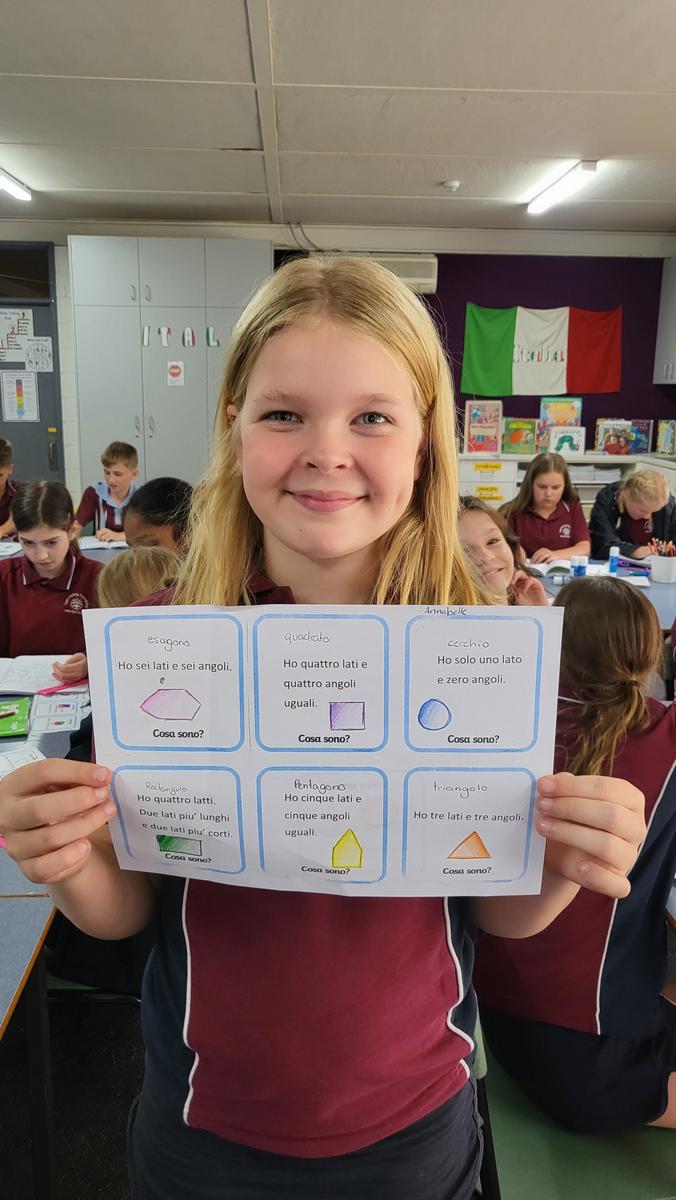 ITAL
Italia
Annabelle
esagono
Ho sei lati e sei angoli.
e
Cosa sono?
quadrato
Ho quattro lati e
quattro angoli
uguali.
Cosa sono?
cerchio
Ho solo uno lato
e zero angoli.
Cosa sono?
Rectangulo
Ho quattro latti.
Due lati piu' lunghi
e due lati piu' corti.
Cosa sono?
Pentagono
Ho cinque lati e
cinque angoli
uguali.
Cosa sono?
triangolo
Ho tre lati e tre angoli.
Cosa sono?